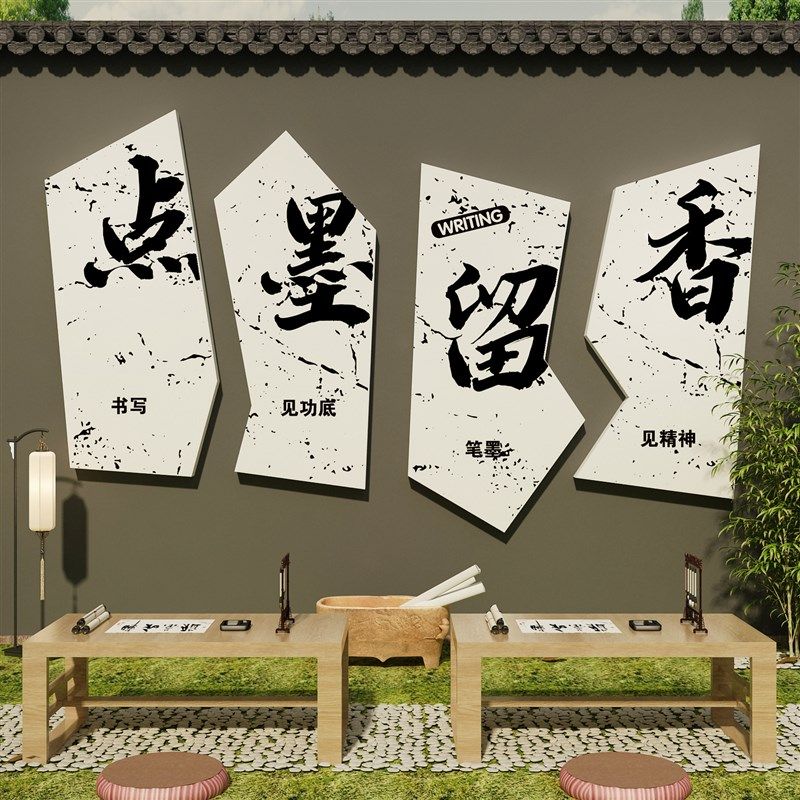 点
书写
墨
见功底
WRITING
留
笔墨
香
见精神